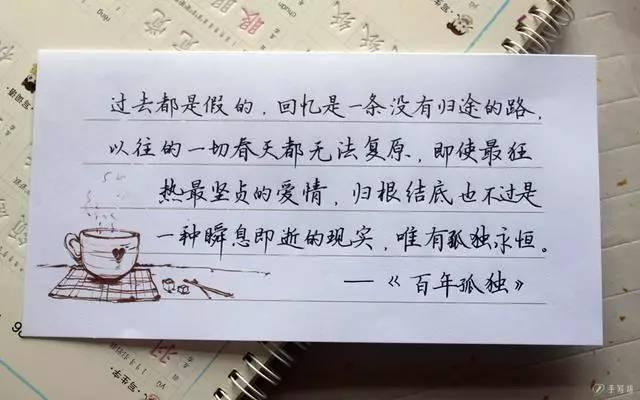 过去都是假的，回忆是一条没有归途的路，
以往的一切春天都无法复原，即使最狂
热最坚贞的爱情，归根结底也不过是
一种瞬息即逝的现实，唯有孤独永恒。
——《百年孤独》
手写坊